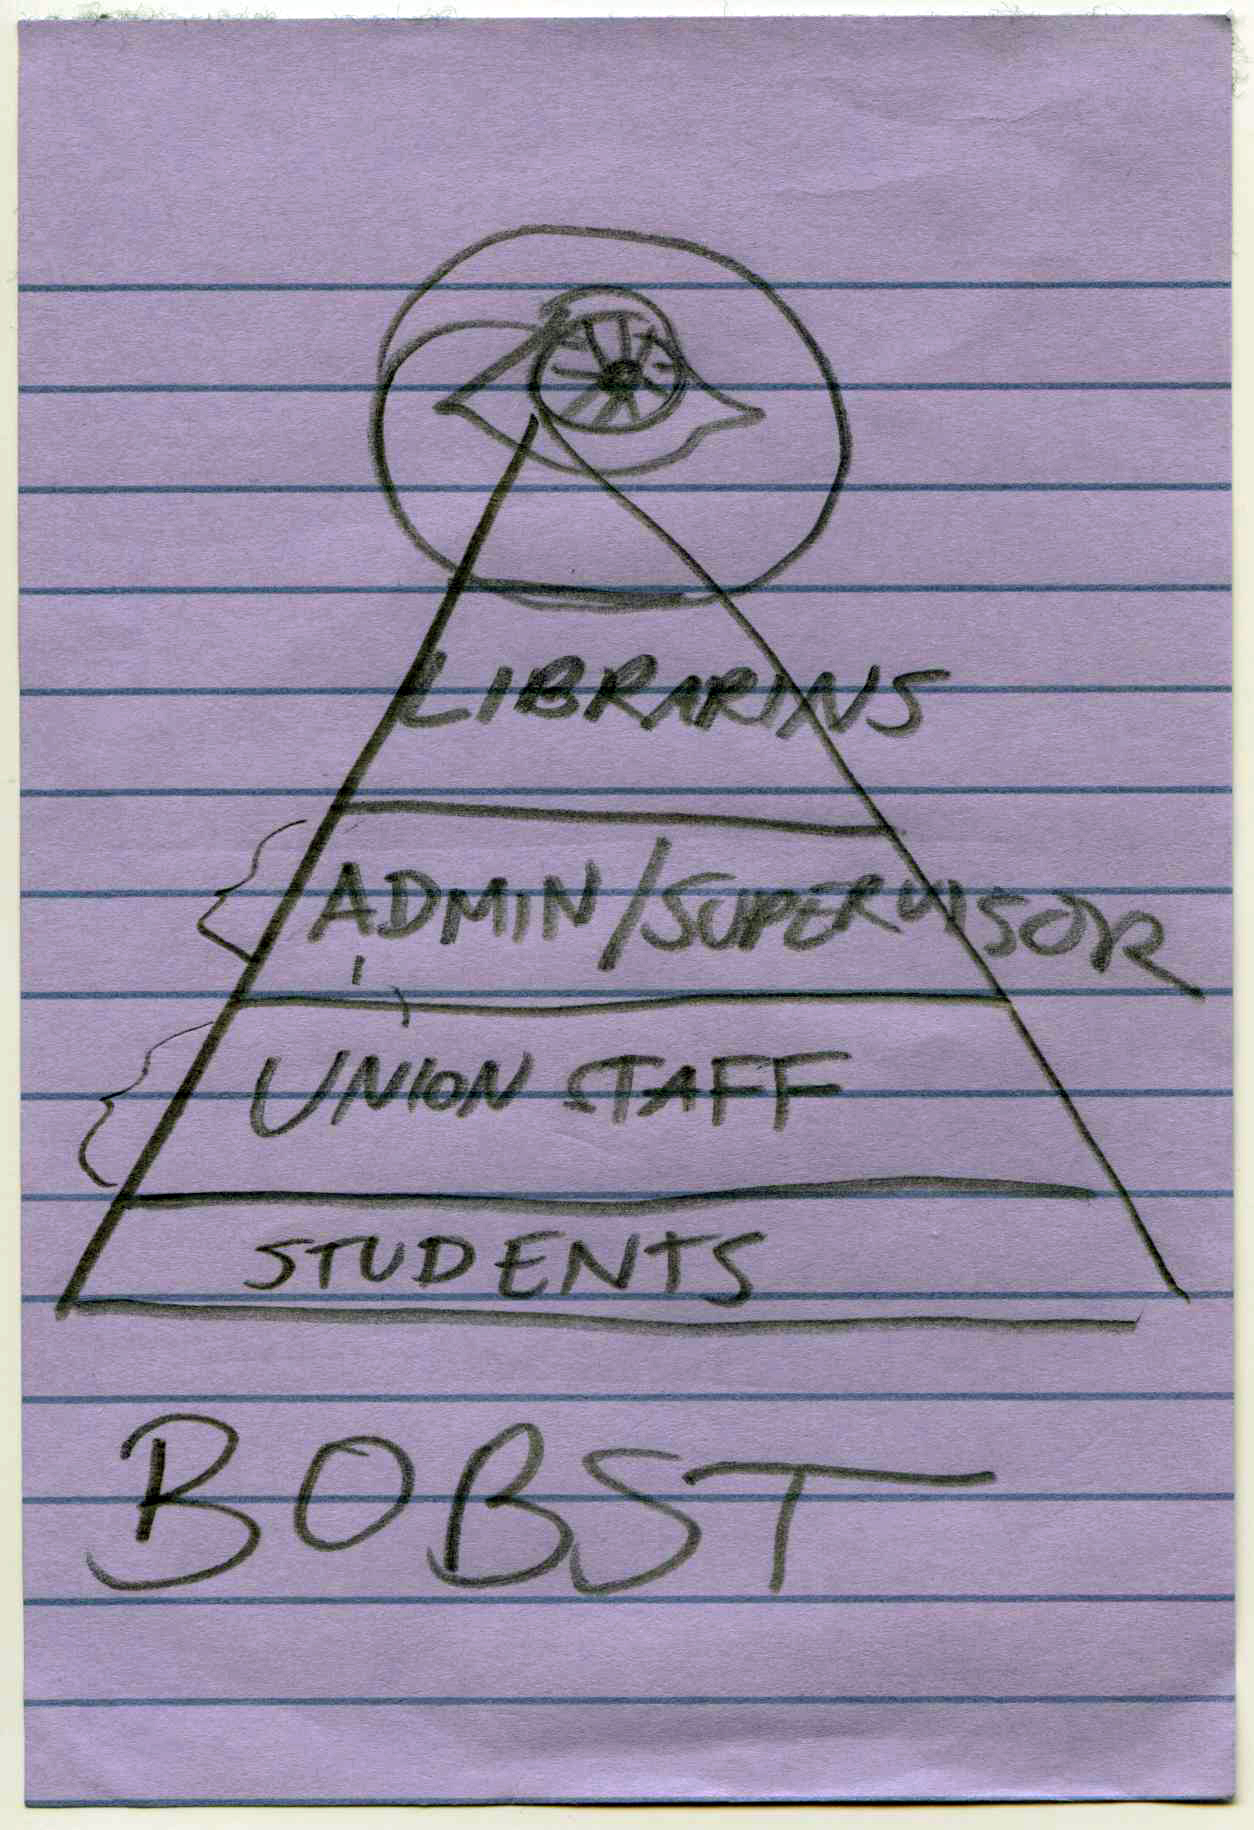 LIBRARINS
ADMIN/SUPERVISOR
UNION STAFF
STUDENTS
BOBST